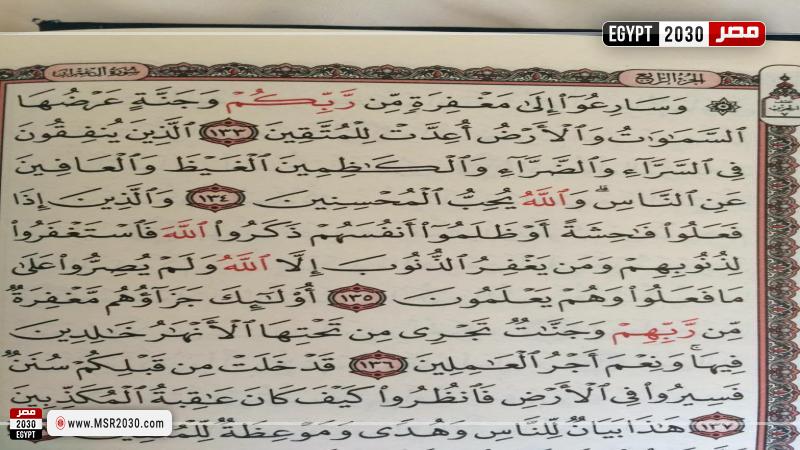 EGYPT 2030 مصر
سورة آل عمران
الجزء الرابع
۞ وَسَارِعُوٓا۟ إِلَىٰ مَغْفِرَةٍ مِّن رَّبِّكُمْ وَجَنَّةٍ عَرْضُهَا
ٱلسَّمَٰوَٰتُ وَٱلْأَرْضُ أُعِدَّتْ لِلْمُتَّقِينَ ١٣٣ ٱلَّذِينَ يُنفِقُونَ
فِى ٱلسَّرَّآءِ وَٱلضَّرَّآءِ وَٱلْكَٰظِمِينَ ٱلْغَيْظَ وَٱلْعَافِينَ
عَنِ ٱلنَّاسِ ۗ وَٱللَّهُ يُحِبُّ ٱلْمُحْسِنِينَ ١٣٤ وَٱلَّذِينَ إِذَا
فَعَلُوا۟ فَٰحِشَةً أَوْ ظَلَمُوٓا۟ أَنفُسَهُمْ ذَكَرُوا۟ ٱللَّهَ فَٱسْتَغْفَرُوا۟
لِذُنُوبِهِمْ وَمَن يَغْفِرُ ٱلذُّنُوبَ إِلَّا ٱللَّهُ وَلَمْ يُصِرُّوا۟ عَلَىٰ
مَا فَعَلُوا۟ وَهُمْ يَعْلَمُونَ ١٣٥ أُو۟لَٰٓئِكَ جَزَآؤُهُم مَّغْفِرَةٌ
مِّن رَّبِّهِمْ وَجَنَّٰتٌ تَجْرِى مِن تَحْتِهَا ٱلْأَنْهَٰرُ خَٰلِدِينَ
فِيهَا ۚ وَنِعْمَ أَجْرُ ٱلْعَٰمِلِينَ ١٣٦ قَدْ خَلَتْ مِن قَبْلِكُمْ سُنَنٌ
فَسِيرُوا۟ فِى ٱلْأَرْضِ فَٱنظُرُوا۟ كَيْفَ كَانَ عَٰقِبَةُ ٱلْمُكَذِّبِينَ
١٣٧ هَٰذَا بَيَانٌ لِّلنَّاسِ وَهُدًى وَمَوْعِظَةٌ لِّلْمُتَّقِينَ
مصر 2030 EGYPT
www.MSR2030.com